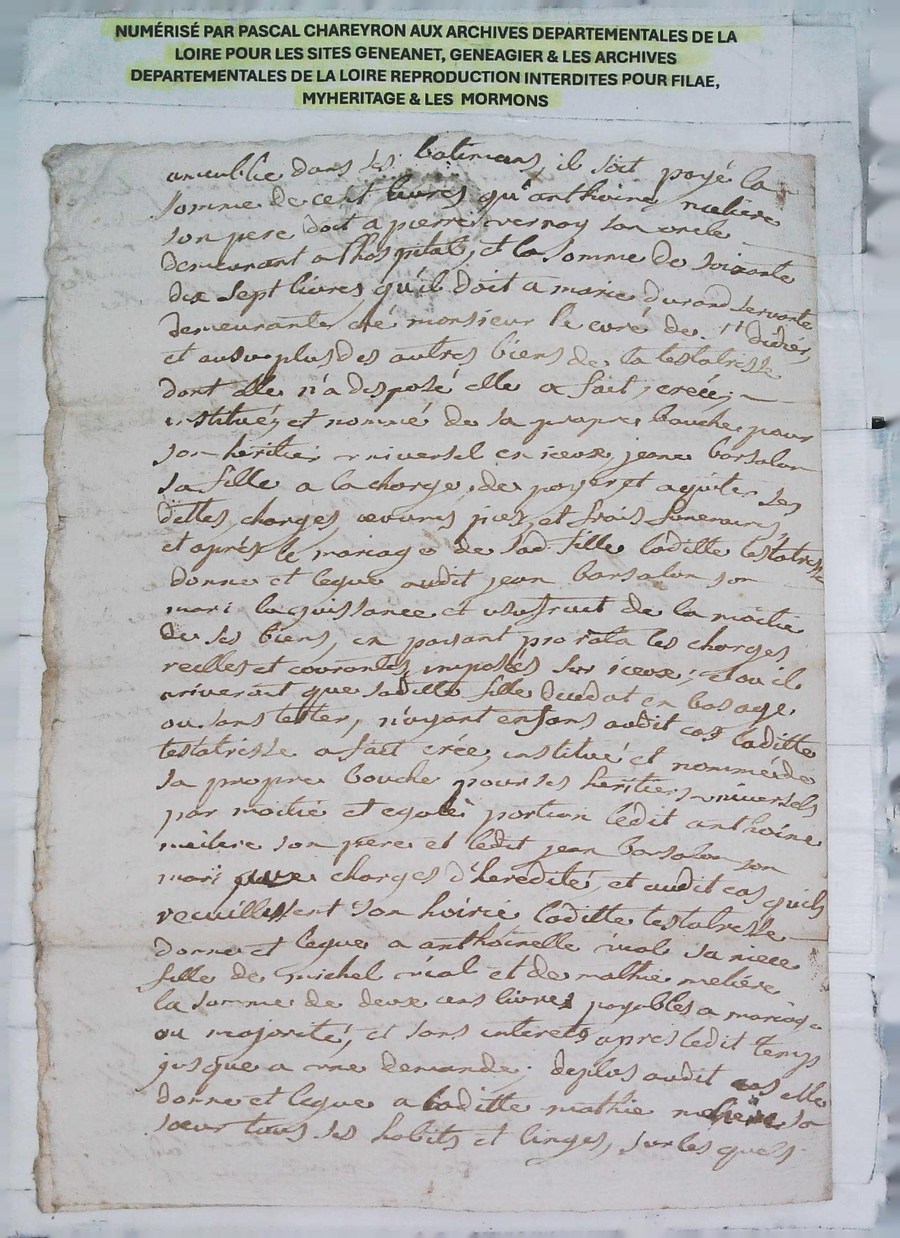 NUMÉRISÉ PAR PASCAL CHAREYRON AUX ARCHIVES DEPARTEMENTALES DE LA
LOIRE POUR LES SITES GENEANET, GENEAGIER & LES ARCHIVES
DEPARTEMENTALES DE LA LOIRE REPRODUCTION INTERDITES POUR FILAE,
MYHERITAGE & LES MORMONS
ameublie dans ses batimans, il soit payé la
somme de cent livres qu'anthoine meliere
son pere doit a pierre vernay son oncle
demeurant a lhospital, et la somme de soixante
dix sept livres qu'il doit a marie durand servante
demeurante ché monsieur le curé de st didier,
et au surplus des autres biens de la testatrisse
dont elle n'a disposé elle a fait, creée,
institué, et nommé de sa propre bouche pour
son héritier universel en iceux jeane barsalon
sa fille a la charge, de payer et aquiter ses
dettes, charges, œuvres pies, et frais funeraires,
et aprés le mariage de sad. fille laditte testatrisse
donne et legue audit jean barsalon son
mari la jouissance et usufruit de la moitie
de ses biens, en paisant pro rata les charges
reelles et courantes, imposés sur iceux; et ou il
ariverait que saditte fille decedat en bas age,
ou sans tester, n'ayant enfans audit cas laditte
testatrisse a fait crée, institué et nommé de
sa propre bouche pour ses héritiers universels
par moitié et egale portion ledit anthoine
meliere son pere et ledit jean barsalon son
mari aux charges d'heredité, et audit cas qu'ils
recuillissent son hoirie laditte testatrisse
donne et legue a anthoinette vial sa niece
fille de michel vial et de mathie meliere
la somme de deux cens livres payables a mariage
ou majorité, et sans interets apres ledit temps
jusque a une demande; de plus audit cas elle
donne et legue a laditte mathie meliere sa
sœur tous ses habits et linges, sur les quels